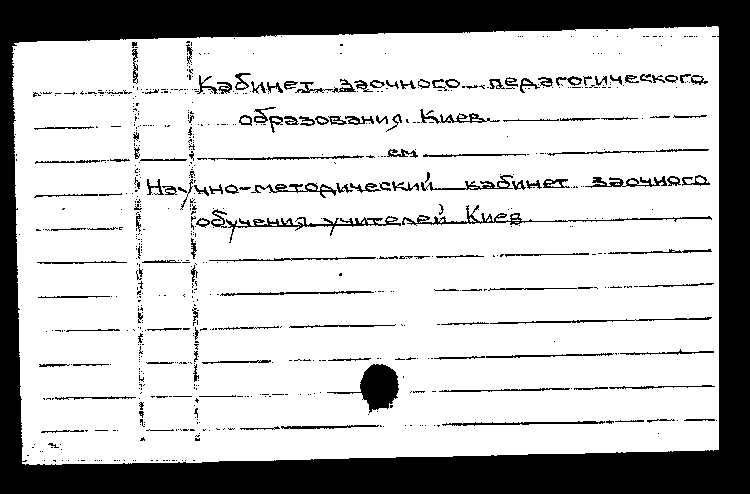 Кабинет заочного педагогического
образования. Киев.
см.
Научно-методический кабинет заочного
обучения учителей Киев